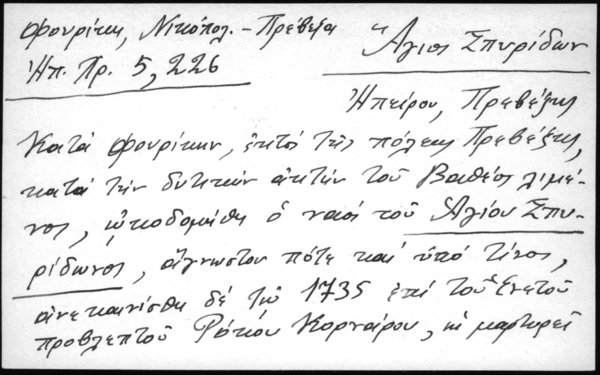 Φουρίκη, Νικόπολ. - Πρέβεζα
Ἅγιος Σπυρίδων
Ἠπ. Χρ. 5, 226
Ἠπείρου, Πρεβέζης
Κατά Φουρίκην, ἐκτός τῆς πόλεως Πρεβέζης,
κατά τήν δυτικήν ἀκτήν τοῦ Βαθέος λιμέ-
νος, ᾠκοδομήθη ὁ ναός τοῦ Ἁγίου Σπυ-
ρίδωνος, ἄγνωστον πότε καί ὑπό τίνος,
ἀνεκαινίσθη δέ τῷ 1735 ἐπί τοῦ Ἑνετοῦ
προβλεπτοῦ Κορνάρου, ὡς μαρτυρεῖ